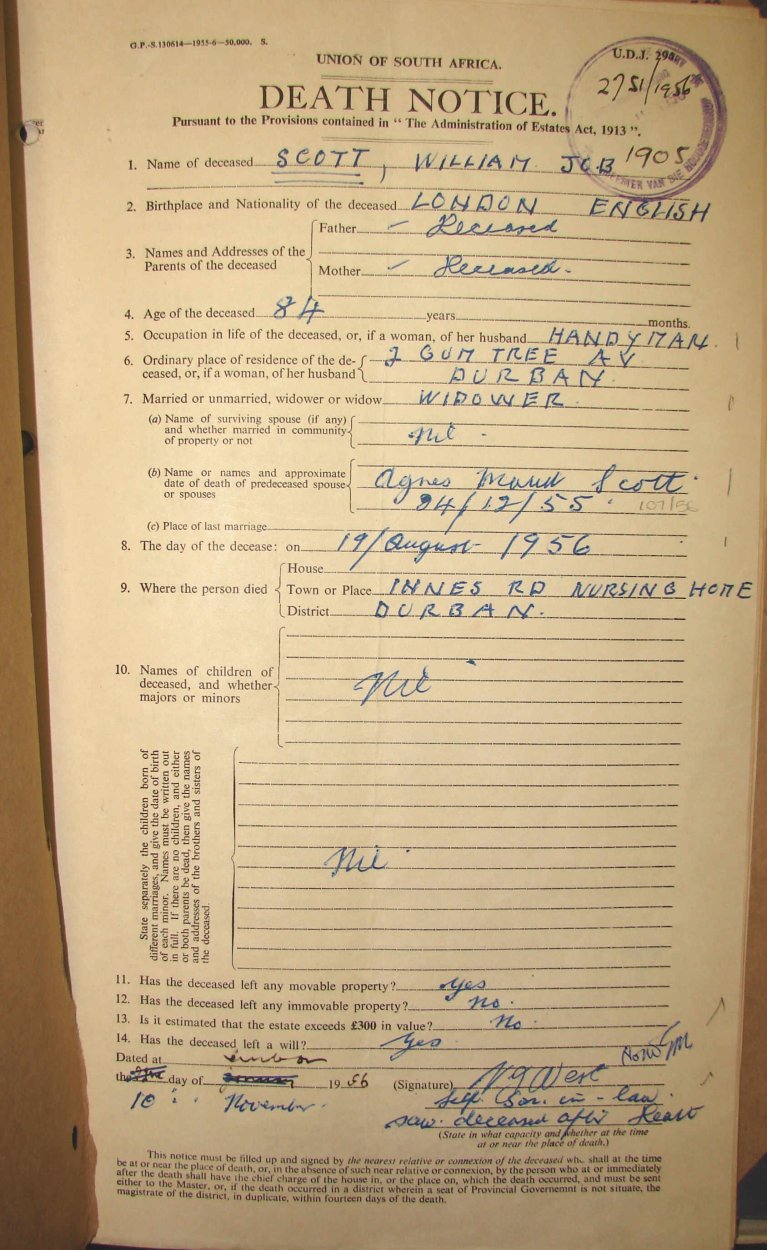 G.P.-S.130614—1955-6—50,000. S.
U.D.J.
UNION OF SOUTH AFRICA.
2751/1956
DEATH NOTICE.
Pursuant to the Provisions contained in "The Administration of Estates Act, 1913".
1905
1. Name of deceased SCOTT, WILLIAM JOB
2. Birthplace and Nationality of the deceased LONDON ENGLISH
3. Names and Addresses of the Parents of the deceased
Father – Deceased
Mother – Deceased.
4. Age of the deceased 84 years months.
5. Occupation in life of the deceased, or, if a woman, of her husband HANDYMAN.
6. Ordinary place of residence of the de-
ceased, or, if a woman, of her husband
GUM TREE AV
DURBAN
7. Married or unmarried, widower or widow WIDOWER
(a) Name of surviving spouse (if any)
and whether married in community
of property or not
Nil -
(b) Name or names and approximate
date of death of predeceased spouse
or spouses
Agnes Maud Scott.
24/12/55
(c) Place of last marriage
8. The day of the decease: on 19/August 1956
9. Where the person died
House
Town or Place INNES RD NURSING HOME
District DURBAN.
10. Names of children of
deceased, and whether
majors or minors
Nil
State separately the children born of
different marriages, and give the date of birth
of each minor. Names must be written out
in full. If there are no children, and either
or both parents be dead, then give the names
and addresses of the brothers and sisters of
the deceased.
Nil
11. Has the deceased left any movable property? Yes
12. Has the deceased left any immovable property? No.
13. Is it estimated that the estate exceeds £300 in value? No
14. Has the deceased left a will? Yes
Dated at Durban
the day of 1956
10 November
(Signature) West
self. Son-in-law.
saw deceased after death
(State in what capacity and whether at the time
at or near the place of death.)
This notice must be filled up and signed by the nearest relative or connexion of the deceased who shall at the time
be at or near the place of death, or, in the absence of such near relative or connexion, by the person who at or immediately
after the death shall have the chief charge of the house in, or the place on, which the death occurred, and must be sent
either to the Master, or, if the death occurred in a district wherein a seat of Provincial Governemnt is not situate, the
magistrate of the district, in duplicate, within fourteen days of the death.